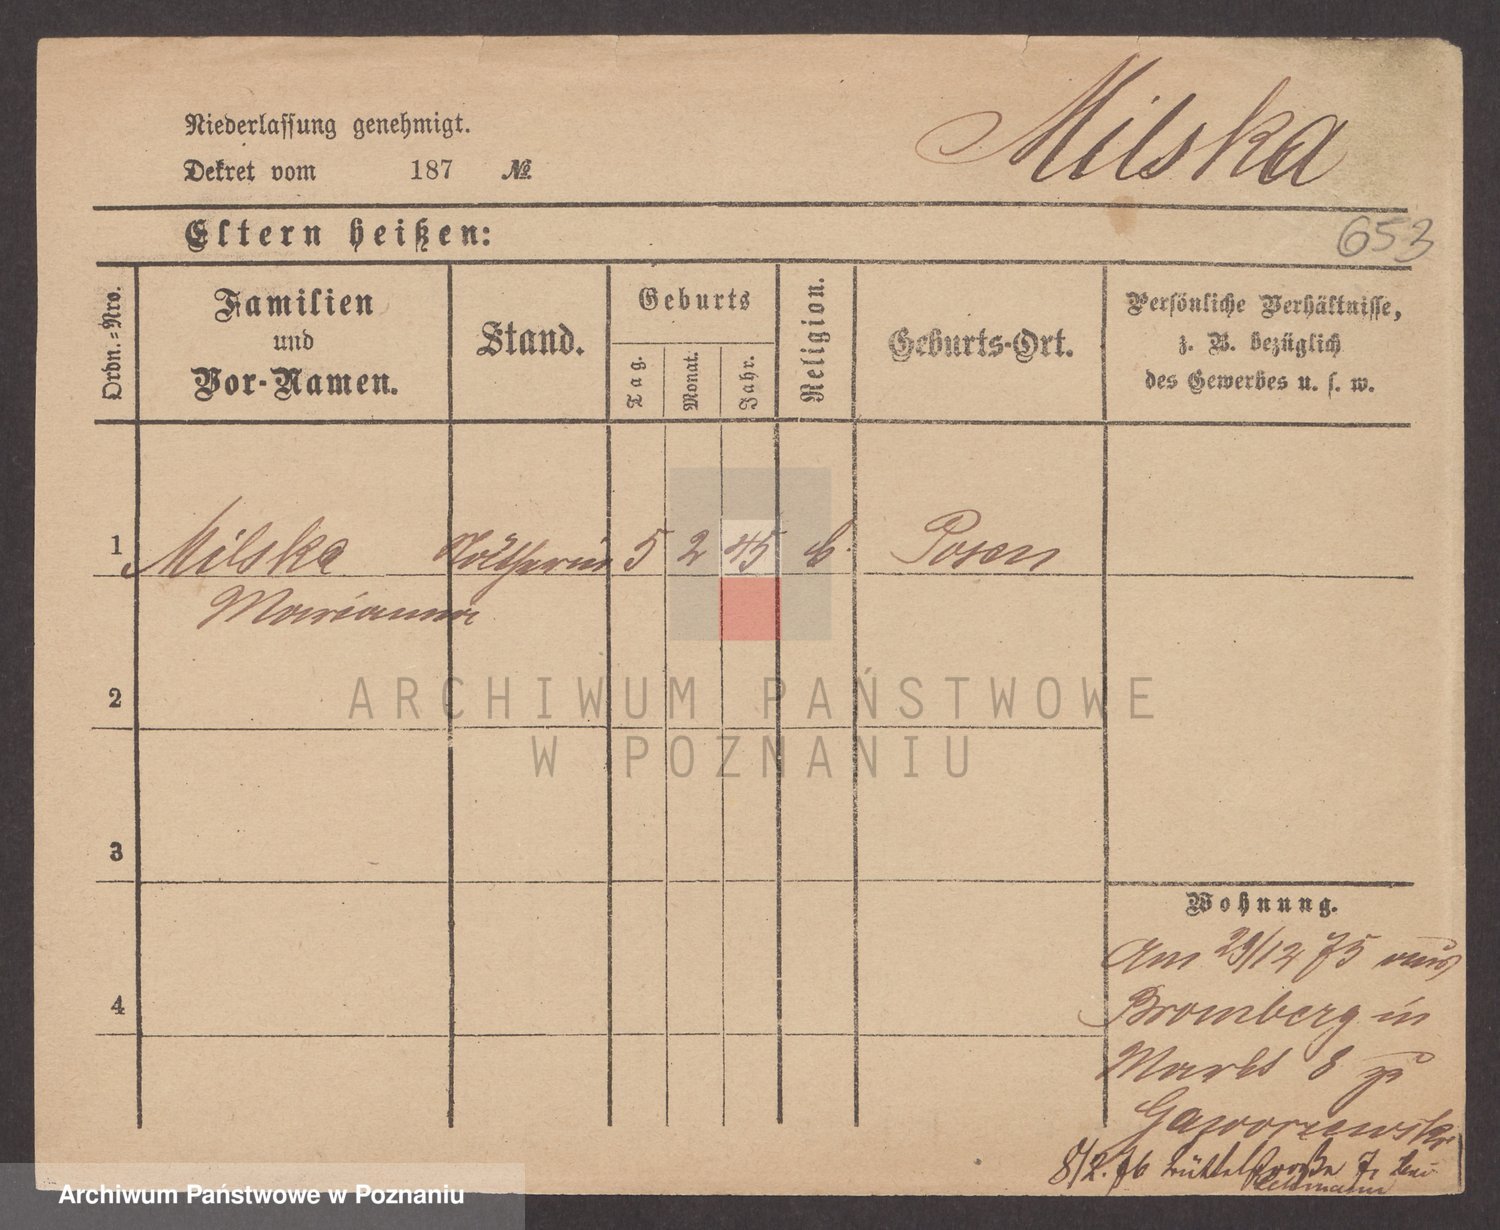 Niederlassung genehmigt.
Dekret vom 187 №
Milska
Eltern heißen:
653
Ordn.=Nro.
Familien
und
Vor-Namen.
Stand.
Geburts
Tag.
Monat.
Jahr.
Religion.
Geburts-Ort.
Persönliche Verhältnisse,
z. B. bezüglich
des Gewerbes u. s. w.
1 Milska 5 2 45 Posen
Marianna
ARCHIWUM PAŃSTWOWE
W POZNANIU
2
3
4
Wohnung.
Am 29/12 75 aus
Bromberg in
Markt 8 zu
Gaworzewski
8/2. 76 7, bei
Archiwum Państwowe w Poznaniu